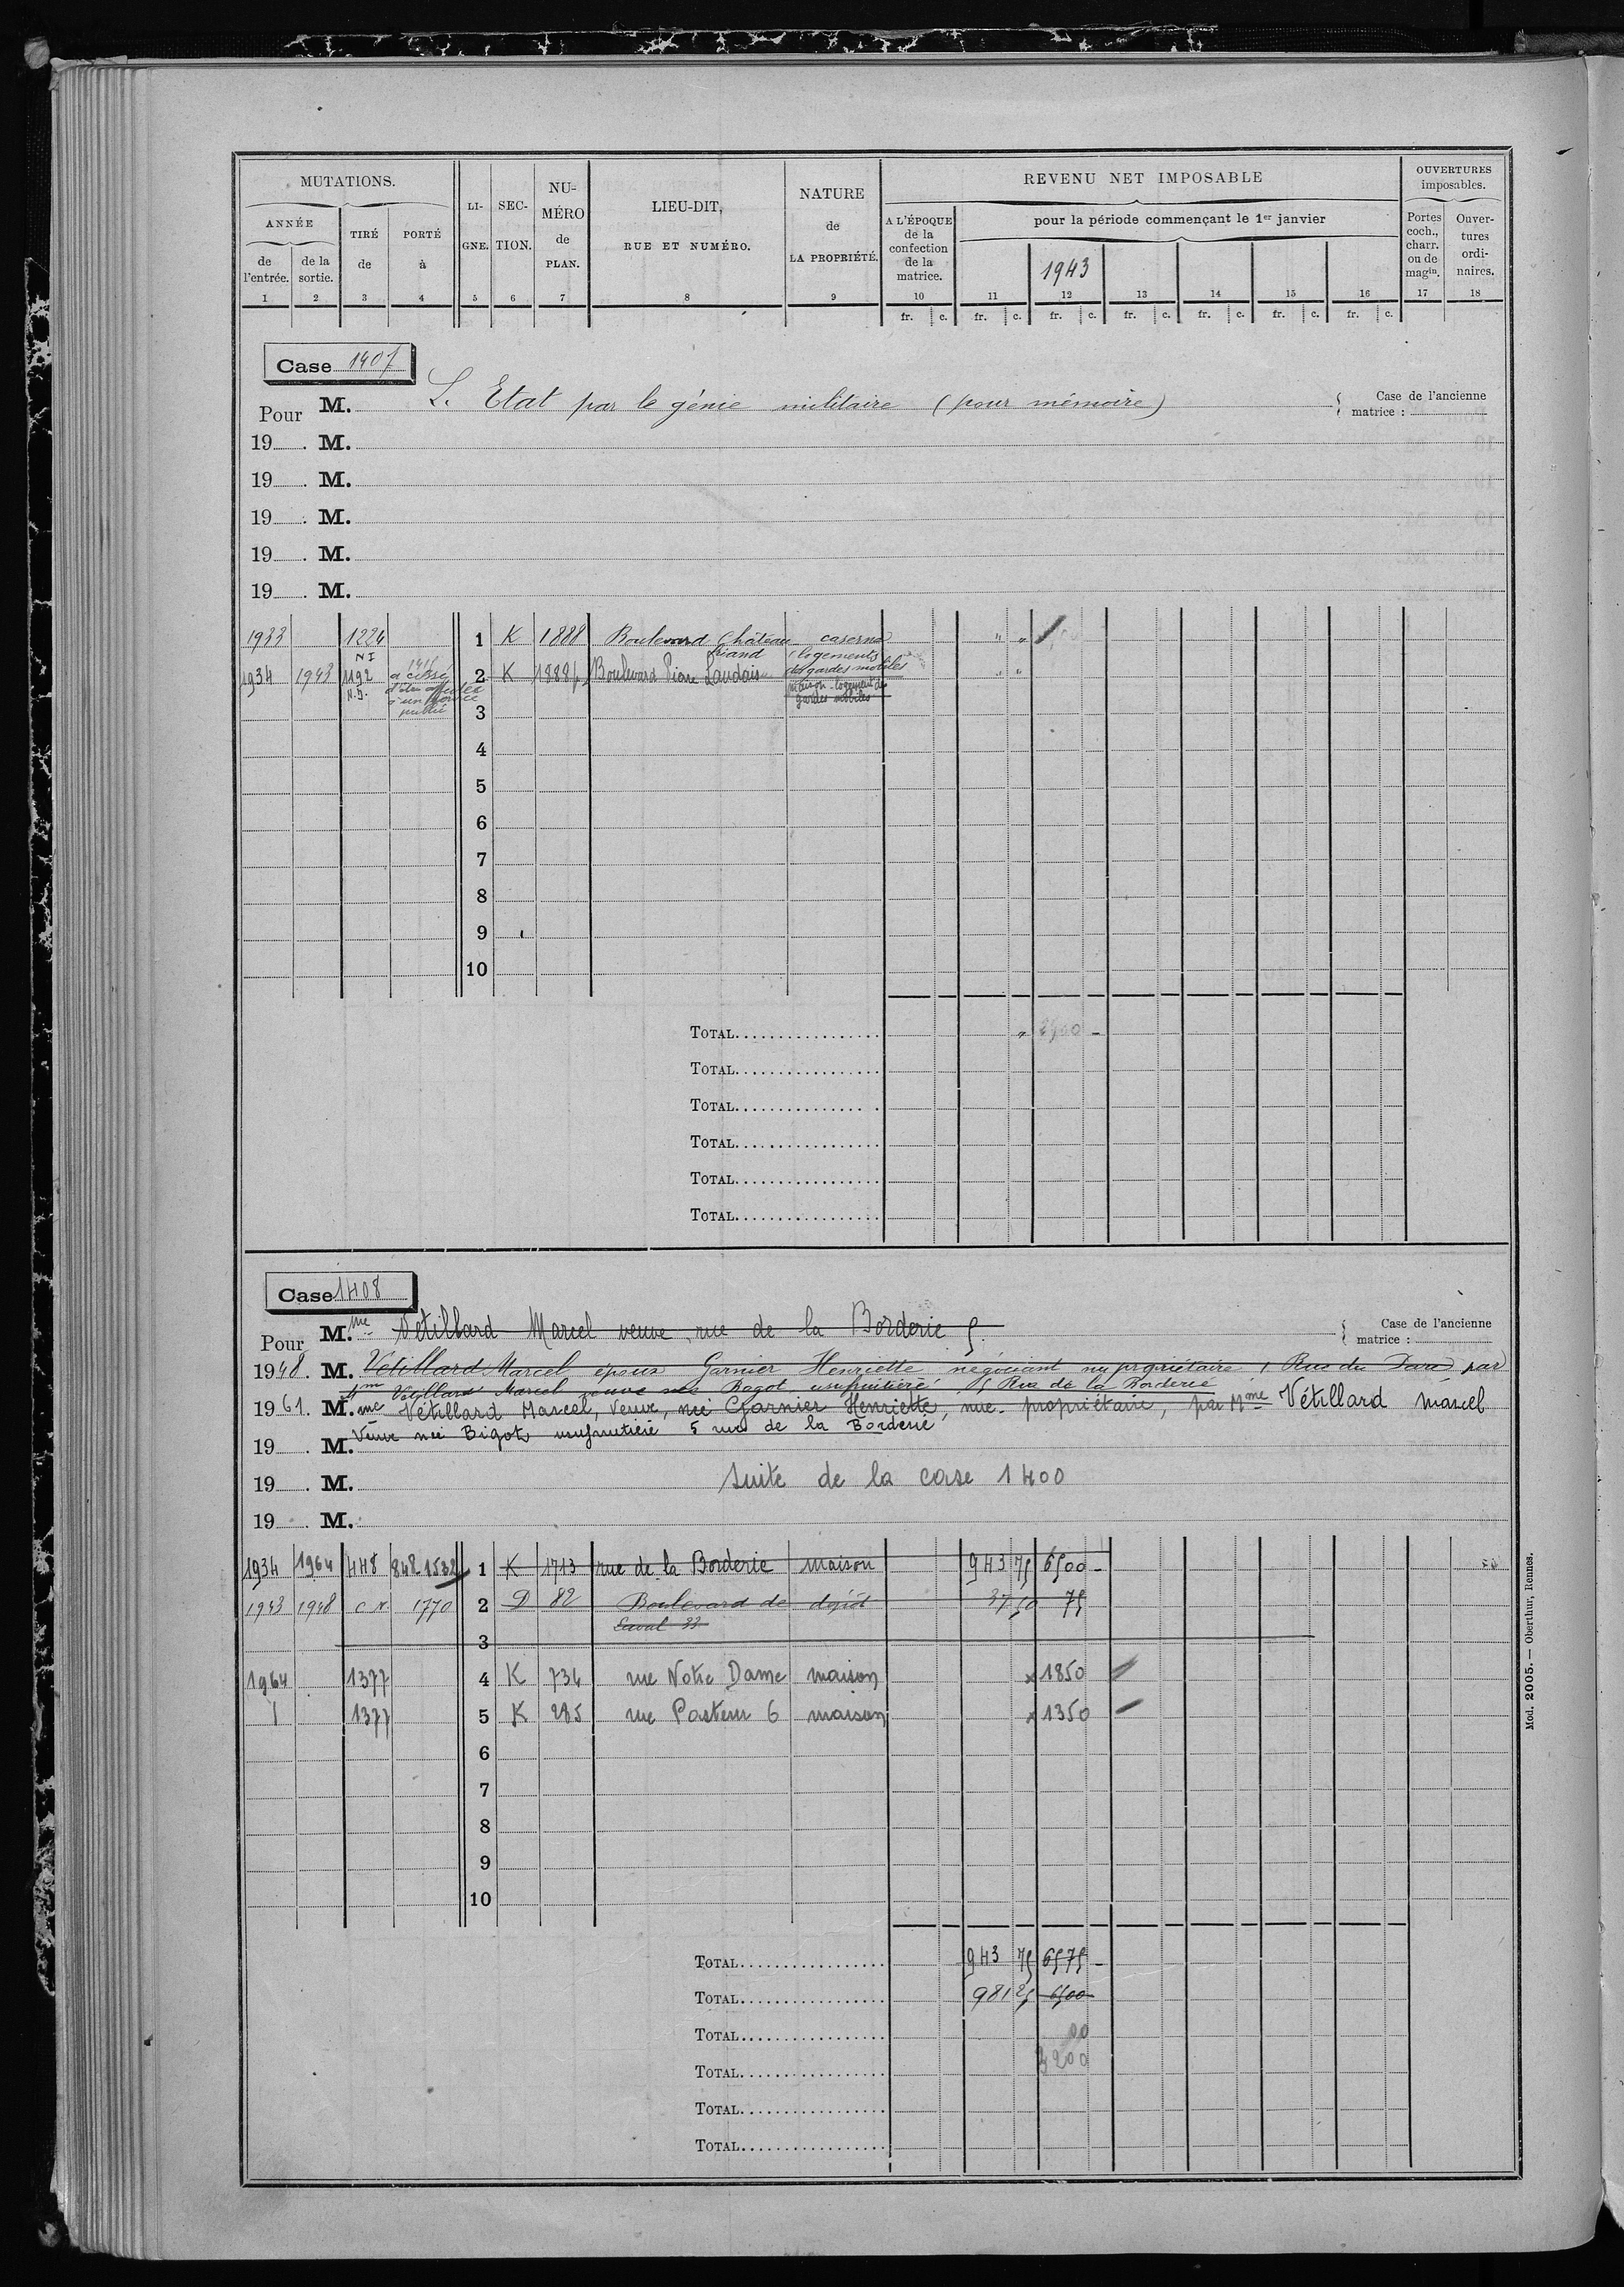 MUTATIONS.
ANNÉE
de l'entrée.
de la sortie.
TIRÉ de
PORTÉ à
LIGNE.
SECTION.
NUMÉRO de PLAN.
LIEU-DIT, RUE ET NUMÉRO.
NATURE de LA PROPRIÉTÉ.
REVENU NET IMPOSABLE
A L'ÉPOQUE de la confection de la matrice.
pour la période commençant le 1er janvier
1943
OUVERTURES imposables.
Portes coch., charr. ou de magin.
Ouvertures ordinaires.
1 2 3 4 5 6 7 8 9 10 11 12 13 14 15 16 17 18
fr. c. fr. c. fr. c. fr. c. fr. c. fr. c. fr. c.
Case 1407
Pour M. L. Etat par le génie militaire (pour mémoire)
Case de l'ancienne matrice :
19 . M.
19 . M.
19 . M.
19 . M.
19 . M.
1933 1224 1 K 1888 Boulevard Château caserne " "
NI
logements
1934 1943 1192 a cessé 2 K 1888 Boulevard des gardes mobiles " "
d'être affecté
à un service
public
maison logement de
gardes mobiles
3
4
5
6
7
8
9
10
TOTAL
TOTAL
TOTAL
TOTAL
TOTAL
TOTAL
Case 1408
Pour M.me Vétillard Marcel veuve rue de la Borderie 5.
Case de l'ancienne matrice :
1948. M. Vétillard Marcel époux Garnier Henriette négociant nu propriétaire, Rue du par
Mme Vétillard Marcel veuve née Bagot usufruitière 5 Rue de la Borderie
1961. M.me Vétillard Marcel, Veuve, née Garnier Henriette, nue-propriétaire, par Mme Vétillard Marcel
Veuve née Bigot usufruitière 5 rue de la Borderie
19 . M.
19 . M. Suite de la case 1400
19 . M.
1934 1964 448 848 1532 1 K 1713 rue de la Borderie maison 943 75 6500 -
1943 1948 C.N. 1770 2 D 82 Boulevard de dépôt 37 50 75
Laval 33
3
1964 1377 4 K 734 rue Notre Dame maison x 1850
1377 5 K 285 rue Pasteur 6 maison x 1350
6
7
8
9
10
TOTAL 943 75 6575 -
TOTAL 981 25 6500
TOTAL 00
TOTAL 3200
TOTAL
TOTAL
Mod. 2005. — Oberthur, Rennes.